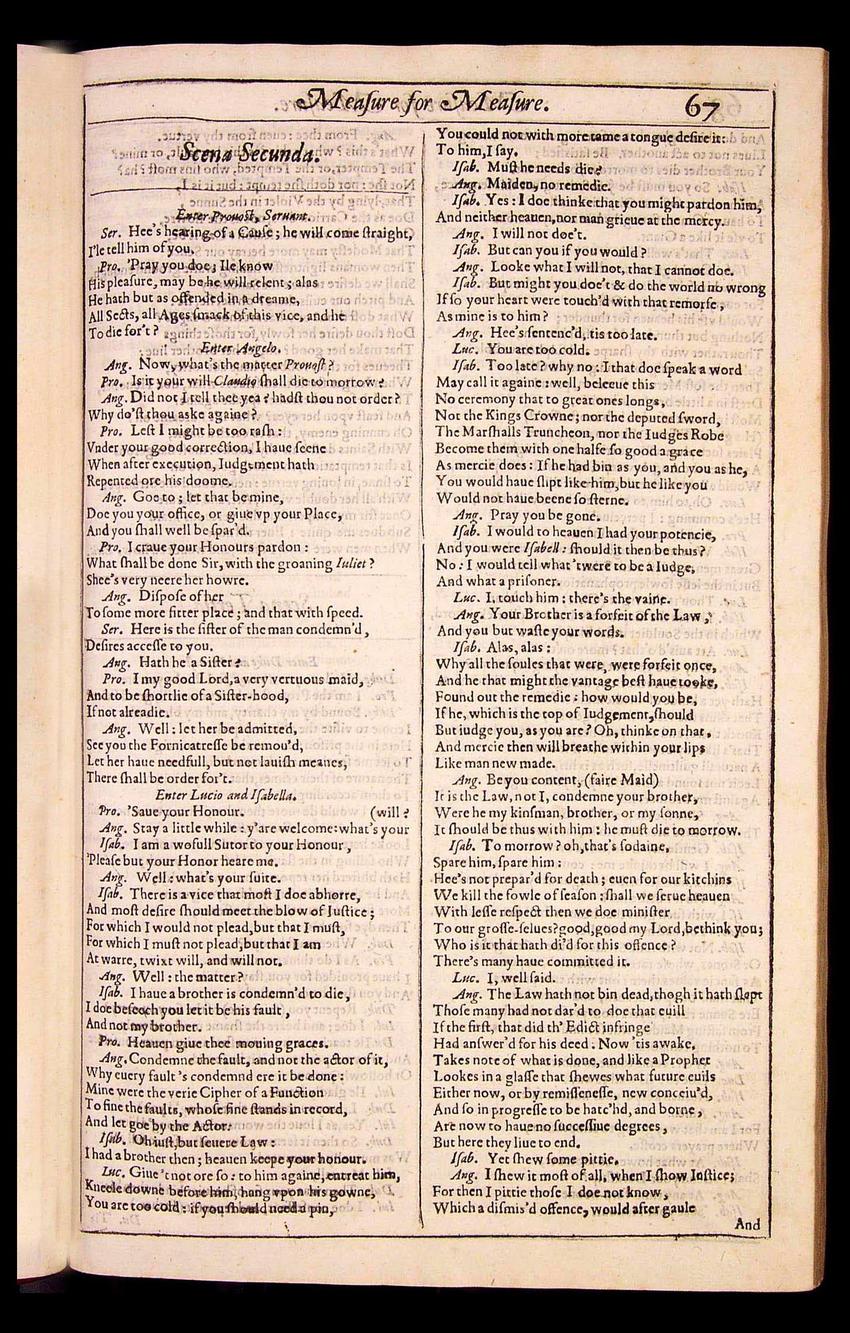 Meaſure for Meaſure. 67
Scena Secunda.
Enter Prouoſt, Seruant.
Ser. Hee's hearing of a Cauſe; he will come ſtraight,
I'le tell him of you.
Pro. 'Pray you doe; Ile know
His pleaſure, may be he will relent; alas
He hath but as offended in a dreame,
All Sects, all Ages ſmack of this vice, and he
To die for't?
Enter Angelo.
Ang. Now, what's the matter Prouoſt?
Pro. Is it your will Claudio ſhall die to morrow?
Ang. Did not I tell thee yea? hadſt thou not order?
Why do'ſt thou aske againe?
Pro. Leſt I might be too raſh:
Vnder your good correction, I haue ſeene
When after execution, Iudgement hath
Repented ore his doome.
Ang. Goe to; let that be mine,
Doe you your office, or giue vp your Place,
And you ſhall well be ſpar'd.
Pro. I craue your Honours pardon:
What ſhall be done Sir, with the groaning Iuliet?
Shee's very neere her howre.
Ang. Diſpoſe of her
To ſome more fitter place; and that with ſpeed.
Ser. Here is the ſiſter of the man condemn'd,
Deſires acceſſe to you.
Ang. Hath he a Siſter?
Pro. I my good Lord, a very vertuous maid,
And to be ſhortlie of a Siſter-hood,
If not alreadie.
Ang. Well: let her be admitted,
See you the Fornicatreſſe be remou'd,
Let her haue needfull, but not lauiſh meanes,
There ſhall be order for't.
Enter Lucio and Iſabella.
Pro. 'Saue your Honour. (will?
Ang. Stay a little while: y'are welcome: what's your
Iſab. I am a wofull Sutor to your Honour,
'Pleaſe but your Honor heare me.
Ang. Well: what's your ſuite.
Iſab. There is a vice that moſt I doe abhorre,
And moſt deſire ſhould meet the blow of Iuſtice;
For which I would not plead, but that I muſt,
For which I muſt not plead, but that I am
At warre, twixt will, and will not.
Ang. Well: the matter?
Iſab. I haue a brother is condemn'd to die,
I doe beſeech you let it be his fault,
And not my brother.
Pro. Heauen giue thee mouing graces.
Ang. Condemne the fault, and not the actor of it,
Why euery fault's condemnd ere it be done:
Mine were the verie Cipher of a Function
To fine the faults, whoſe fine ſtands in record,
And let goe by the Actor:
Iſab. Oh iuſt, but ſeuere Law:
I had a brother then; heauen keepe your honour.
Luc. Giue't not ore ſo: to him againe, entreat him,
Kneele downe before him, hang vpon his gowne,
You are too cold: if you ſhould need a pin,
You could not with more tame a tongue deſire it:
To him, I ſay.
Iſab. Muſt he needs die?
Ang. Maiden, no remedie.
Iſab. Yes: I doe thinke that you might pardon him,
And neither heauen, nor man grieue at the mercy.
Ang. I will not doe't.
Iſab. But can you if you would?
Ang. Looke what I will not, that I cannot doe.
Iſab. But might you doe't & do the world no wrong
If ſo your heart were touch'd with that remorſe,
As mine is to him?
Ang. Hee's ſentenc'd, tis too late.
Luc. You are too cold.
Iſab. Too late? why no: I that doe ſpeak a word
May call it againe: well, beleeue this
No ceremony that to great ones longs,
Not the Kings Crowne; nor the deputed ſword,
The Marſhalls Truncheon, nor the Iudges Robe
Become them with one halfe ſo good a grace
As mercie does: If he had bin as you, and you as he,
You would haue ſlipt like him, but he like you
Would not haue beene ſo ſterne.
Ang. Pray you be gone.
Iſab. I would to heauen I had your potencie,
And you were Iſabell: ſhould it then be thus?
No: I would tell what 'twere to be a Iudge,
And what a priſoner.
Luc. I, touch him: there's the vaine.
Ang. Your Brother is a forfeit of the Law,
And you but waſte your words.
Iſab. Alas, alas:
Why all the ſoules that were, were forfeit once,
And he that might the vantage beſt haue tooke,
Found out the remedie: how would you be,
If he, which is the top of Iudgement, ſhould
But iudge you, as you are? Oh, thinke on that,
And mercie then will breathe within your lips
Like man new made.
Ang. Be you content, (faire Maid)
It is the Law, not I, condemne your brother,
Were he my kinſman, brother, or my ſonne,
It ſhould be thus with him: he muſt die to morrow.
Iſab. To morrow? oh, that's ſodaine,
Spare him, ſpare him:
Hee's not prepar'd for death; euen for our kitchins
We kill the fowle of ſeaſon: ſhall we ſerue heauen
With leſſe reſpect then we doe miniſter
To our groſſe-ſelues? good, good my Lord, bethink you;
Who is it that hath di'd for this offence?
There's many haue committed it.
Luc. I, well ſaid.
Ang. The Law hath not bin dead, thogh it hath ſlept
Thoſe many had not dar'd to doe that euill
If the firſt, that did th' Edict infringe
Had anſwer'd for his deed. Now 'tis awake,
Takes note of what is done, and like a Prophet
Lookes in a glaſſe that ſhewes what future euils
Either now, or by remiſſeneſſe, new conceiu'd,
And ſo in progreſſe to be hatc'hd, and borne,
Are now to haue no ſucceſſiue degrees,
But here they liue to end.
Iſab. Yet ſhew ſome pittie.
Ang. I ſhew it moſt of all, when I ſhow Iuſtice;
For then I pittie thoſe I doe not know,
Which a diſmis'd offence, would after gaule
And